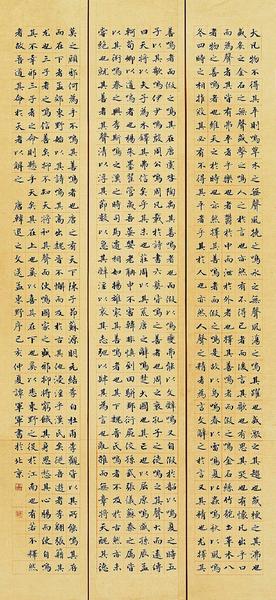 大凡物不得其平則鳴草木之無聲風撓之鳴水之無聲風蕩之鳴其躍也或激之其趨也或梗之其沸也
或炙之金石之無聲或擊之鳴人之於言也亦然有不得已者而後言其歌也有思其哭也有懷凡出乎口
而為聲者其皆有弗平者乎樂也者鬱於中而泄於外者也擇其善鳴者而假之鳴金石絲竹匏土革木八
者物之善鳴者也維天之於時也亦然擇其善鳴者而假之鳴是故以鳥鳴春以雷鳴夏以蟲鳴秋以風鳴
冬四時之相推敚其必有不得其平者乎其於人也亦然人聲之精者為言文辭之於言又其精也尤擇其
善鳴者而假之鳴其在唐虞咎陶禹其善鳴者也而假以鳴夔弗能以文辭鳴又自假於韶以鳴夏之時五
子以其歌鳴伊尹鳴殷周公鳴周凡載於詩書六藝皆鳴之善者也周之衰孔子之徒鳴之其聲大而遠傳
曰天將以夫子為木鐸其弗信矣乎其末也莊周以其荒唐之辭鳴楚大國也其亡也以屈原鳴臧孫辰孟
軻荀卿以道鳴者也楊朱墨翟管夷吾晏嬰老聃申不害韓非慎到田駢鄒衍尸佼孫武張儀蘇秦之屬皆
以其術鳴秦之興李斯鳴之漢之時司馬遷相如揚雄最其善鳴者也其下魏晉氏鳴者不及於古然亦未
嘗絕也就其善者其聲清以浮其節數以急其辭淫以哀其志弛以肆其為言也亂雜而無章將天醜其德
莫之顧邪何為乎不鳴其善鳴者也唐之有天下陳子昂蘇源明元結李白杜甫李觀皆以其所能鳴其存
而在下者孟郊東野始以其詩鳴其高出魏晉不懈而及於古其他浸淫乎漢氏矣從吾遊者李翱張籍其
尤也三子者之鳴信善矣抑不知天將和其聲而使鳴國家之盛邪抑將窮餓其身思愁其心腸而使自鳴
其不幸邪三子者之命則懸乎天矣其在上也奚以喜其在下也奚以悲東野之役於江南也有若不釋然
者故吾道其命於天者以解之 唐韓退之文送孟東野序己亥仲夏譚軍書於北京